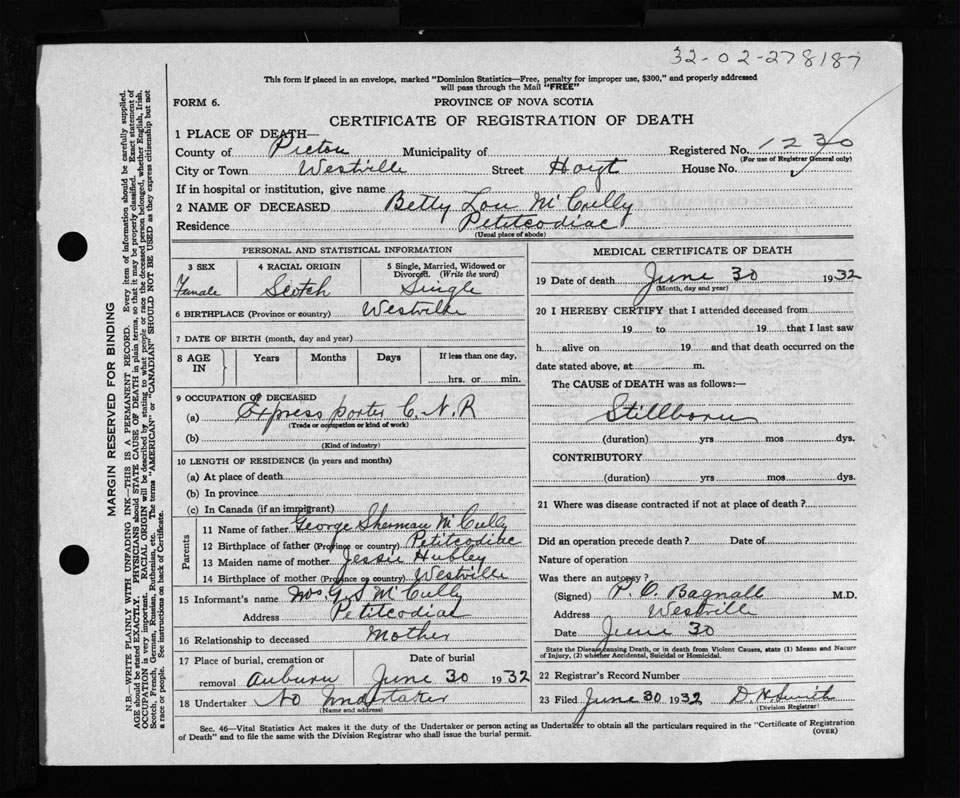 32-02-278187
This form if placed in an envelope, marked "Dominion Statistics—Free, penalty for improper use, $300," and properly addressed
will pass through the Mail "FREE"
FORM 6.
PROVINCE OF NOVA SCOTIA
CERTIFICATE OF REGISTRATION OF DEATH
1 PLACE OF DEATH—
County of Pictou Municipality of Registered No. 1230
(For use of Registrar General only)
City or Town Westville Street Hoyt House No.
If in hospital or institution, give name
2 NAME OF DECEASED Betty Lou McCully
Residence Petitcodiac
(Usual place of abode)
PERSONAL AND STATISTICAL INFORMATION
3 SEX Female
4 RACIAL ORIGIN Scotch
5 Single, Married, Widowed or Divorced. (Write the word) Single
6 BIRTHPLACE (Province or country) Westville
7 DATE OF BIRTH (month, day and year)
8 AGE IN Years Months Days If less than one day, hrs. or min.
9 OCCUPATION OF DECEASED
(a) Express porter C.N.R
(Trade or occupation or kind of work)
(b)
(Kind of industry)
10 LENGTH OF RESIDENCE (in years and months)
(a) At place of death
(b) In province
(c) In Canada (if an immigrant)
Parents
11 Name of father George Sherman McCully
12 Birthplace of father (Province or country) Petitcodiac
13 Maiden name of mother Jessie Hubley
14 Birthplace of mother (Province or country) Westville
15 Informant's name Mrs G S McCully
Address Petitcodiac
16 Relationship to deceased Mother
17 Place of burial, cremation or removal Auburn
Date of burial June 30 1932
18 Undertaker No Undertaker
(Name and address)
MEDICAL CERTIFICATE OF DEATH
19 Date of death June 30 1932
(Month, day and year)
20 I HEREBY CERTIFY that I attended deceased from
19 to 19 that I last saw
h alive on 19 and that death occurred on the
date stated above, at m.
The CAUSE of DEATH was as follows:—
Stillborn
(duration) yrs mos dys.
CONTRIBUTORY
(duration) yrs mos dys.
21 Where was disease contracted if not at place of death?
Did an operation precede death? Date of
Nature of operation
Was there an autopsy?
(Signed) P. O. Bagnall M.D.
Address Westville
Date June 30
State the Disease causing Death, or in death from Violent Causes, state (1) Means and Nature
of Injury, (2) whether Accidental, Suicidal or Homicidal.
22 Registrar's Record Number
23 Filed June 30 1932 D. H. Smith
(Division Registrar)
Sec. 46—Vital Statistics Act makes it the duty of the Undertaker or person acting as Undertaker to obtain all the particulars required in the "Certificate of Registration
of Death" and to file the same with the Division Registrar who shall issue the burial permit.
(OVER)
MARGIN RESERVED FOR BINDING
N.B.—WRITE PLAINLY WITH UNFADING INK—THIS IS A PERMANENT RECORD. Every item of information should be carefully supplied.
AGE should be stated EXACTLY. PHYSICIANS should STATE CAUSE OF DEATH in plain terms, so that it may be properly classified. Exact statement of
OCCUPATION is very important. RACIAL ORIGIN will be described by stating to what people or race the deceased person belonged, whether English, Irish,
Scotch, French, German, Russian, Ruthenian, etc. The terms "AMERICAN" or "CANADIAN" SHOULD NOT BE USED as they express citizenship but not
a race or people. See instructions on back of Certificate.